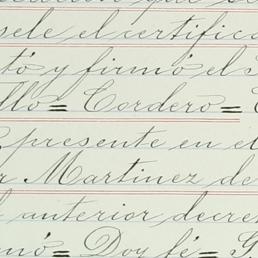 sele el certific
tó y firmó el s
llo = Cordero =
presente en el
r Martinez de
l anterior decre
mó = Doy fé = G